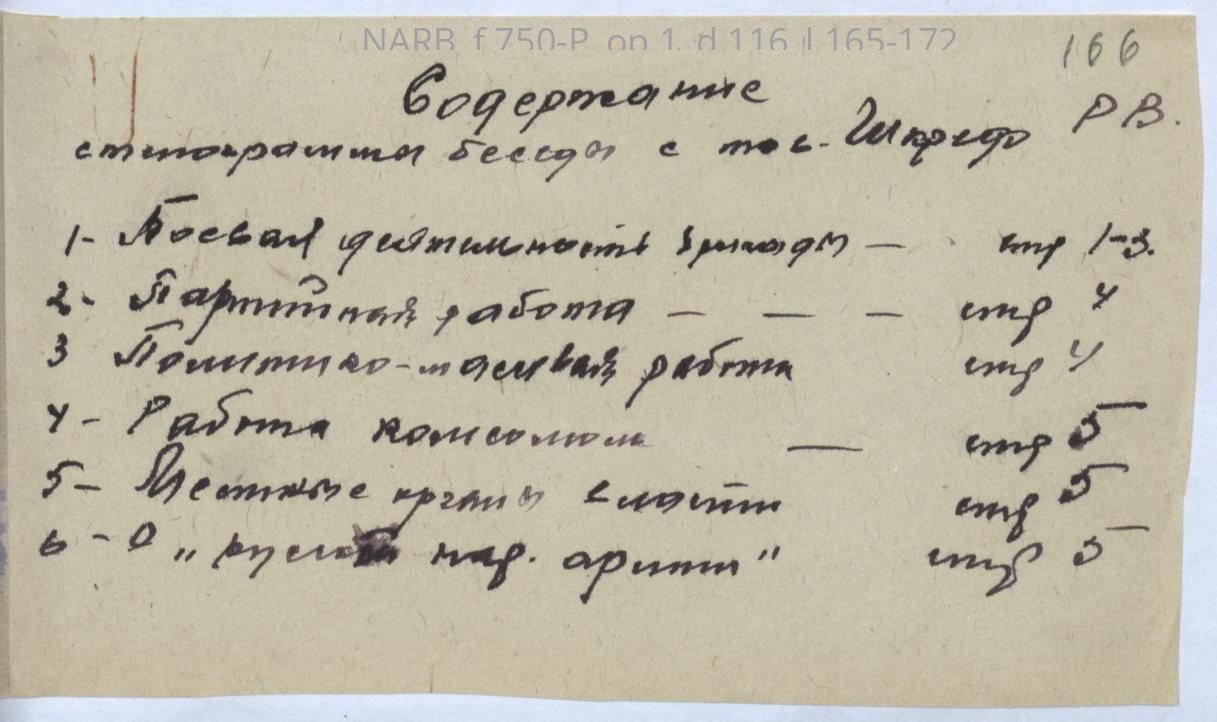 NARB f.750-P op.1 d.116 l.165-172
166
Содержание
стенограммы беседы с тов. Р В.
1- Боевая деятельность бригады — стр 1-3.
2- Партийная работа — — — стр 4
3 Политико-массовая работа стр 4
4- Работа комсомола — стр 5
5- Местные органы власти стр 5
6- О „русской нар. армии" стр 5